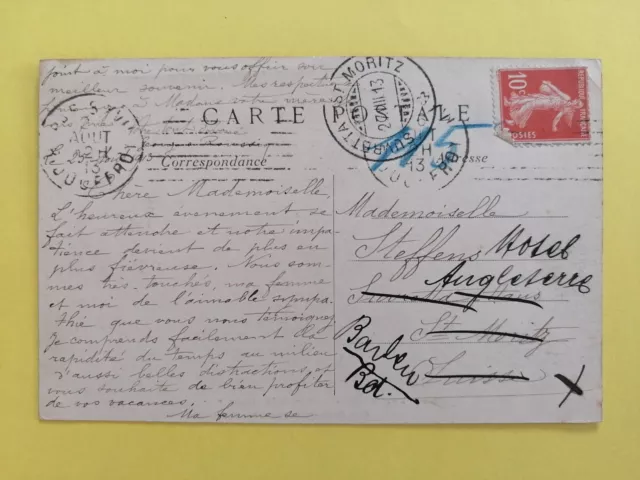 joint à moi pour vous offrir son
meilleur souvenir. Mes respects
à Madame votre mère
CARTE POSTALE
Correspondance
ST. MORITZ
AOUT
13
10c
POSTES
Chère Mademoiselle,
L'heureux événement se
fait attendre et notre impa-
tience devient de plus en
plus fiévreuse. Nous som-
mes très touchés, ma femme
et moi de l'aimable sympa-
thie que vous nous témoignez
Je comprends facilement la
rapidité du temps au milieu
d'aussi belles distractions, et
vous souhaite de bien profiter
de vos vacances.
Ma femme se
Mademoiselle
Steffens Hotel
Angleterre
St Moritz
Suisse
Baden
Bd.